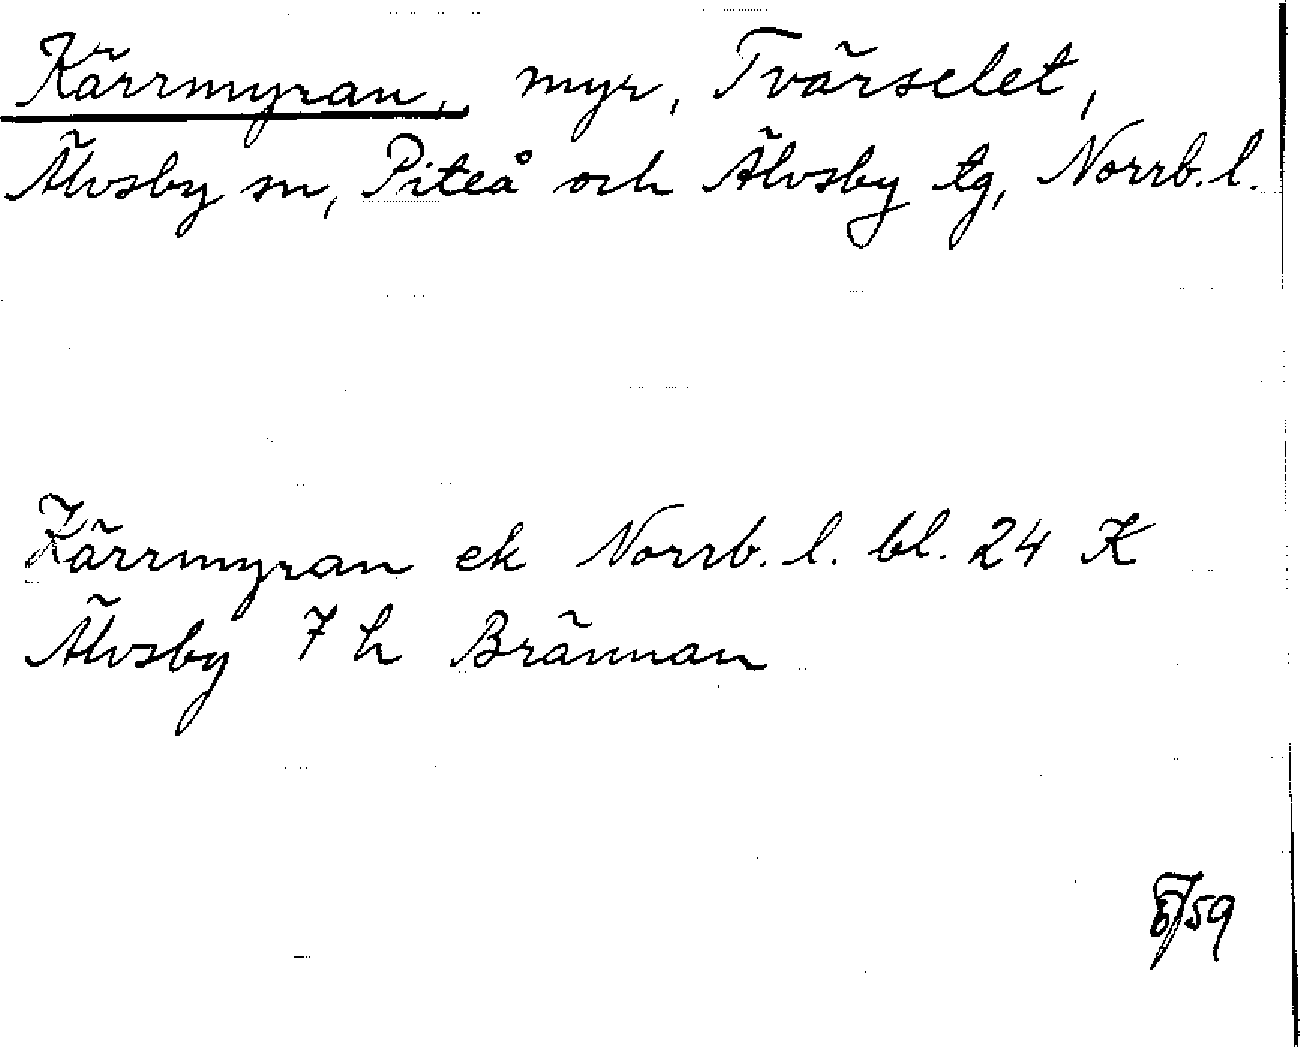 Kärrmyran, myr, Tvärselet,
Älvsby sn, Piteå och Älvsby tg, Norrb. l.
Kärrmyran ek Norrb. l. bl. 24 K
Älvsby 7 h Brännan
/59